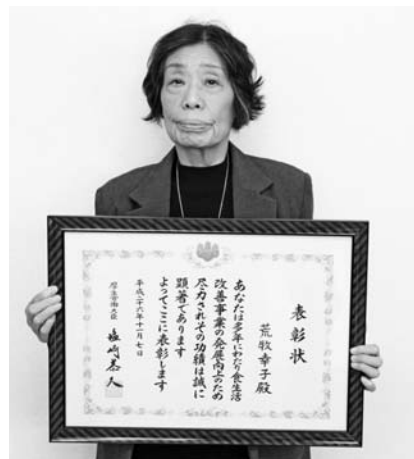 表彰状
荒牧幸子殿
あなたは多年にわたり食生活
改善事業の発展向上のため
尽力されその功績は誠に
顕著であります
よってここに表彰します
平成二十六年十一月七日
厚生労働大臣 塩崎恭久